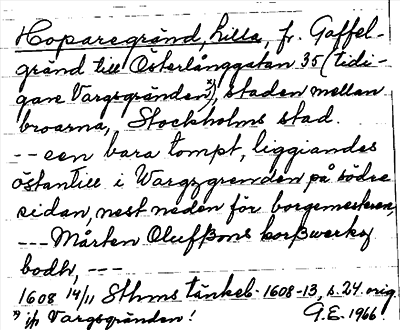 Hoparegränd, Lilla, fr. Gaffel-
gränd till Österlånggatan 35 (tidi-
gare Vargsgränden*), staden mellan
broarna, Stockholms stad.
-- een bara tompt, liggiandes
östantill i Wargzgrenden på södre
sidan, nest neden för borgemesteren,
--- Mårten Oluffßons korßwerks
bodh, ---
1608 14/11 Sthms tänkeb. 1608-13, s. 24 orig.
*) jfr Vargsgränden! G.E. 1966.